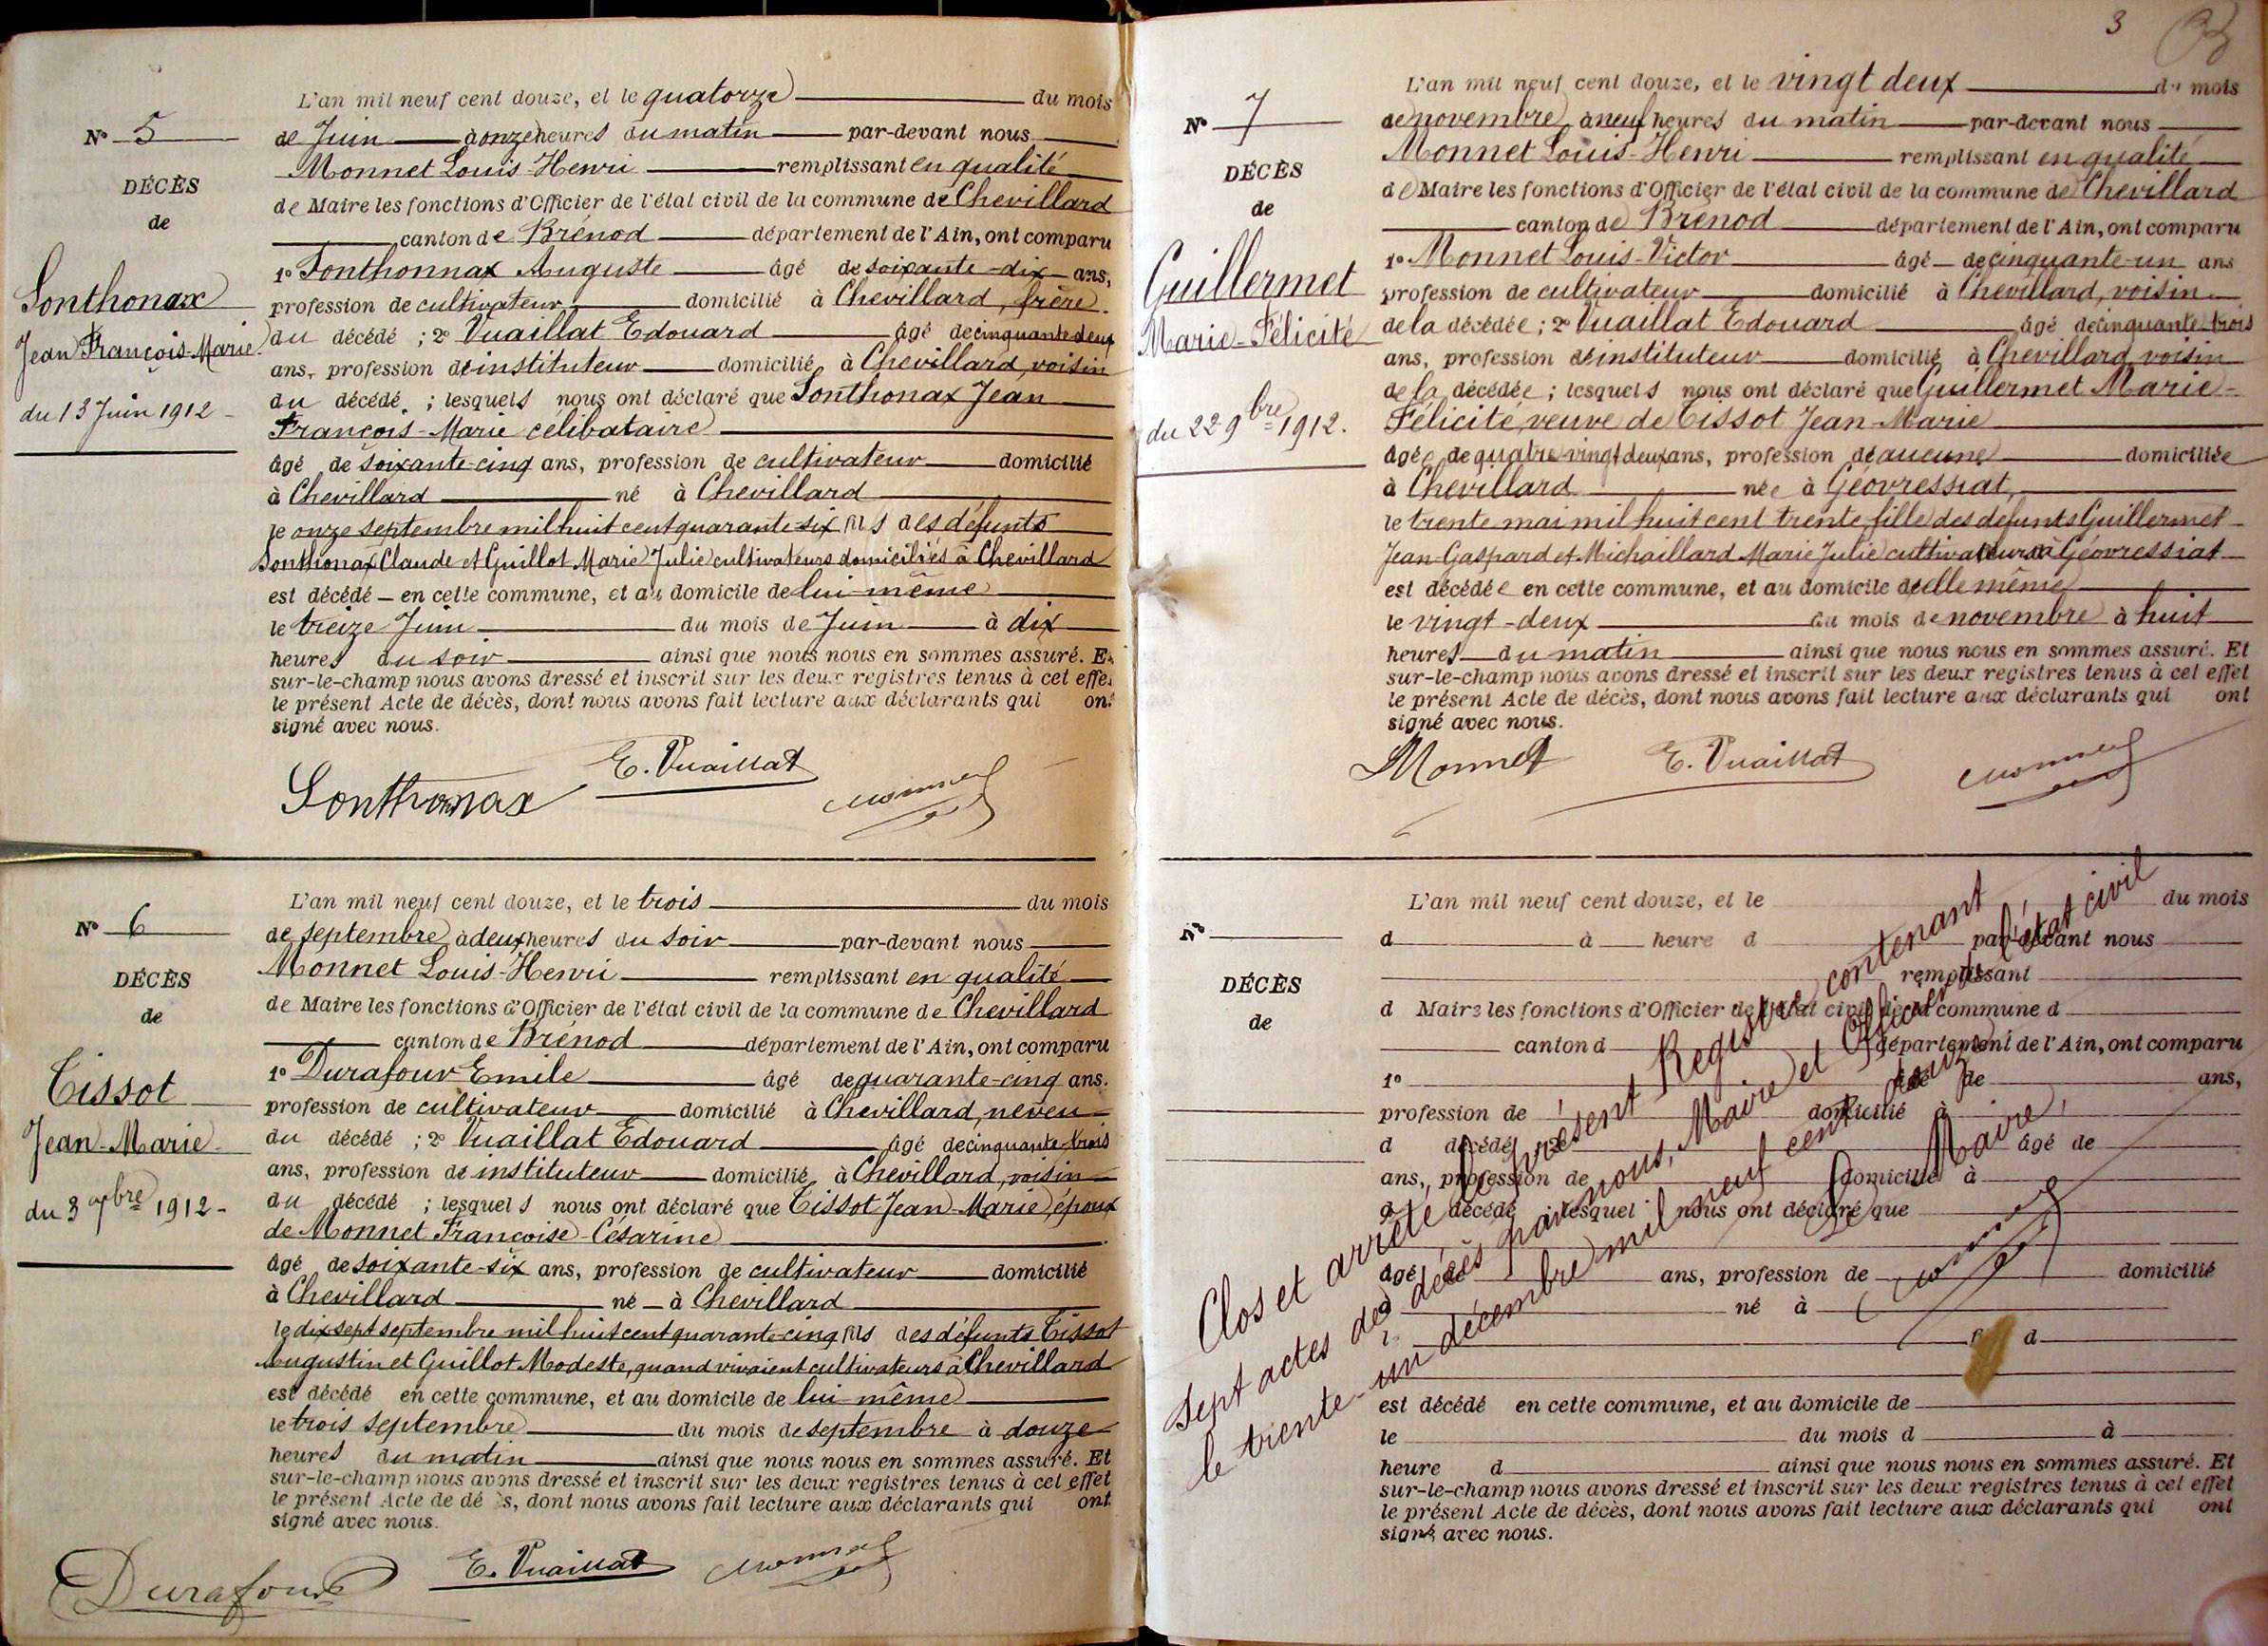 N° 5
DÉCÈS
de
Sonthonax
Jean François-Marie
du 13 Juin 1912
L'an mil neuf cent douze, et le quatorze du mois
de Juin à onze heures du matin par-devant nous
Monnet Louis-Henri remplissant en qualité
de Maire les fonctions d'Officier de l'état civil de la commune de Chevillard
canton de Brénod département de l'Ain, ont comparu
1° Sonthonnax Auguste âgé de soixante-dix ans,
profession de cultivateur domicilié à Chevillard, frère
du décédé ; 2° Vuaillat Edouard âgé de cinquante deux
ans, profession de instituteur domicilié à Chevillard, voisin
du décédé ; lesquels nous ont déclaré que Sonthonax Jean
François-Marie célibataire
âgé de soixante-cinq ans, profession de cultivateur domicilié
à Chevillard né à Chevillard
le onze septembre mil huit cent quarante-six fils des défunts
Sonthonax Claude et Guillot Marie Julie cultivateurs domiciliés à Chevillard
est décédé en cette commune, et au domicile de lui même
le treize Juin du mois de Juin à dix
heures du soir ainsi que nous nous en sommes assuré. Et
sur-le-champ nous avons dressé et inscrit sur les deux registres tenus à cet effet
le présent Acte de décès, dont nous avons fait lecture aux déclarants qui ont
signé avec nous.
Sonthonax E. Vuaillat Monnet
N° 6
DÉCÈS
de
Tissot
Jean-Marie
du 3 7bre 1912
L'an mil neuf cent douze, et le trois du mois
de septembre à deux heures du soir par-devant nous
Monnet Louis-Henri remplissant en qualité
de Maire les fonctions d'Officier de l'état civil de la commune de Chevillard
canton de Brénod département de l'Ain, ont comparu
1° Durafour Emile âgé de quarante-cinq ans.
profession de cultivateur domicilié à Chevillard, neveu
du décédé ; 2° Vuaillat Edouard âgé de cinquante trois
ans, profession de instituteur domicilié à Chevillard, voisin
du décédé ; lesquels nous ont déclaré que Tissot Jean-Marie, époux
de Monnet Françoise-Césarine
âgé de soixante-six ans, profession de cultivateur domicilié
à Chevillard né à Chevillard
le dix sept septembre mil huit cent quarante-cinq fils des défunts Tissot
Augustin et Guillot Modeste, quand vivaient cultivateurs à Chevillard
est décédé en cette commune, et au domicile de lui même
le trois septembre du mois de septembre à douze
heures du matin ainsi que nous nous en sommes assuré. Et
sur-le-champ nous avons dressé et inscrit sur les deux registres tenus à cet effet
le présent Acte de décès, dont nous avons fait lecture aux déclarants qui ont
signé avec nous.
Durafour E. Vuaillat Monnet
3
N° 7
DÉCÈS
de
Guillermet
Marie-Félicité
du 22 9bre 1912.
L'an mil neuf cent douze, et le vingt deux du mois
de novembre à neuf heures du matin par-devant nous
Monnet Louis-Henri remplissant en qualité
de Maire les fonctions d'Officier de l'état civil de la commune de Chevillard
canton de Brénod département de l'Ain, ont comparu
1° Monnet Louis-Victor âgé de cinquante-un ans
profession de cultivateur domicilié à Chevillard, voisin
de la décédée ; 2° Vuaillat Edouard âgé de cinquante trois
ans, profession de instituteur domicilié à Chevillard, voisin
de la décédée ; lesquels nous ont déclaré que Guillermet Marie-
Félicité, veuve de Tissot Jean-Marie
âgée de quatre vingt deux ans, profession de aucune domiciliée
à Chevillard née à Géovressiat,
le trente mai mil huit cent trente, fille des defunts Guillermet
Jean-Gaspard et Michaillard Marie Julie cultivateurs à Géovressiat
est décédée en cette commune, et au domicile de elle même
le vingt-deux du mois de novembre à huit
heures du matin ainsi que nous nous en sommes assuré. Et
sur-le-champ nous avons dressé et inscrit sur les deux registres tenus à cet effet
le présent Acte de décès, dont nous avons fait lecture aux déclarants qui ont
signé avec nous.
Monnet E. Vuaillat Monnet
N°
DÉCÈS
de
L'an mil neuf cent douze, et le du mois
d à heure d par-devant nous
remplissant
d Maire les fonctions d'Officier de l'état civil de la commune d
canton d département de l'Ain, ont comparu
1° âgé de ans,
profession de domicilié à
d décédé ; 2° âgé de
ans, profession de domicilié à
d décédé ; lesquel nous ont déclaré que
âgé de ans, profession de domicilié
à né à
l f d
est décédé en cette commune, et au domicile de
le du mois d à
heure d ainsi que nous nous en sommes assuré. Et
sur-le-champ nous avons dressé et inscrit sur les deux registres tenus à cet effet
le présent Acte de décès, dont nous avons fait lecture aux déclarants qui ont
signé avec nous.
Clos et arrêté le présent Registre contenant
sept actes de décès par nous, Maire et Officier de l'état civil
le trente-un décembre mil neuf cent douze
Le Maire,
Monnet